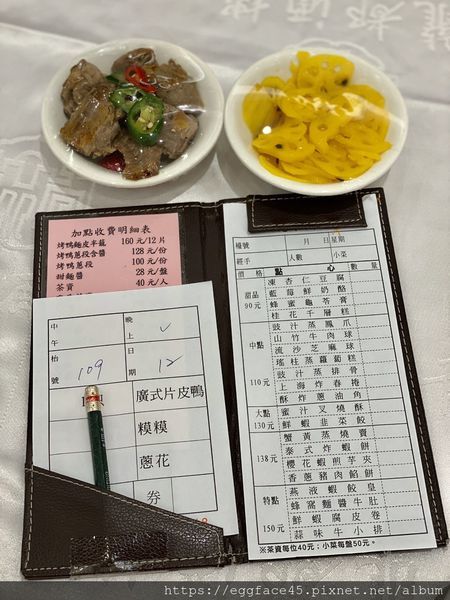 加點收費明細表
烤鴨麵皮半籠 160元/12片
烤鴨蔥段含醬 128元/份
烤鴨蔥段 100元/份
甜麵醬 28元/盤
茶資 40元/人
中午 晚上 ✓
枱號 109 日期 12
廣式片皮鴨
糗糗
蔥花
券
檯號 月 日 星期
經手 人數 小菜
價格 點心 數量
甜品 90元
凍杏仁豆腐
藍莓鮮奶酪
蜂蜜龜苓膏
桂花千層糕
中點 110元
豉汁蒸鳳爪
山竹牛肉球
流沙芝麻球
瑤柱蒸蘿蔔糕
豉汁蒸排骨
上海炸春捲
酥炸蔥油角
大點 130元
蜜汁叉燒酥
鮮蝦韭菜餃
138元
蟹黃蒸燒賣
泰式炸蝦餅
櫻花蝦煎芋夾
香蔥豬肉餡餅
特點 150元
燕液蝦餃皇
蜂窩麵醬牛肚
鮮蝦腐皮卷
蒜味牛小排
※茶資每位40元；小菜每盤50元。
https://eggface45.pixnet.net/album